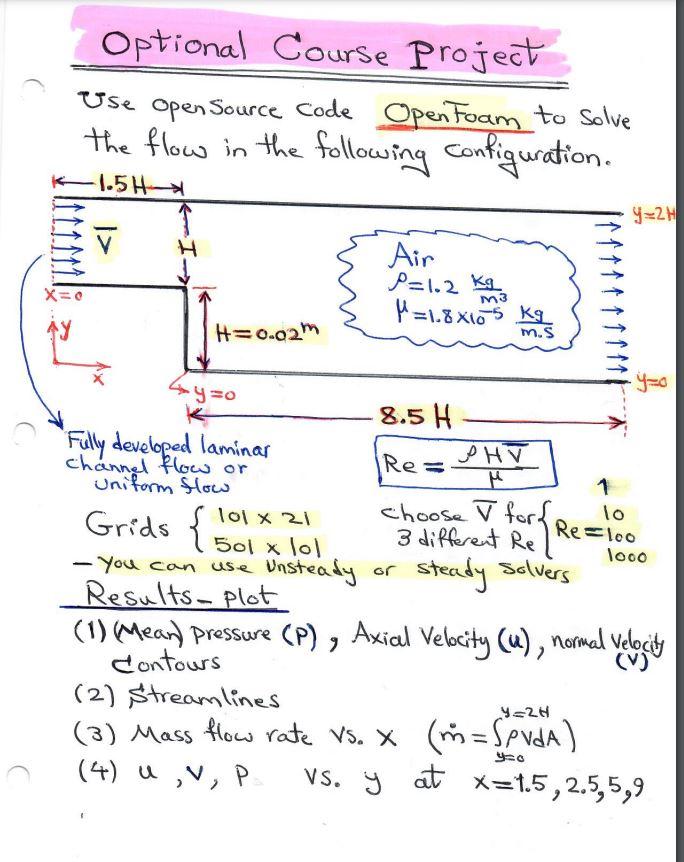 Optional Course Project
Use OpenSource Code OpenFoam to solve
the flow in the following configuration.
1.5H
y=2H
V̅
H
Air
ρ=1.2 Kg/m3
μ=1.8x10-5 Kg/m.s
x=0
y
x
H=0.02m
y=0
y=0
8.5 H
Fully developed laminar
channel flow or
Uniform flow
Re = ρHV̅/μ
Grids { 101 x 21
501 x 101
choose V̅ for
3 different Re { Re=
1
10
100
1000
- You can use Unsteady or steady Solvers
Results - plot
(1) (Mean) pressure (P), Axial Velocity (u), normal Velocity (V)
Contours
(2) Streamlines
(3) Mass flow rate vs. x (ṁ=∫ρVdA)
y=2H
y=0
(4) u, v, P vs. y at x=1.5, 2.5, 5, 9